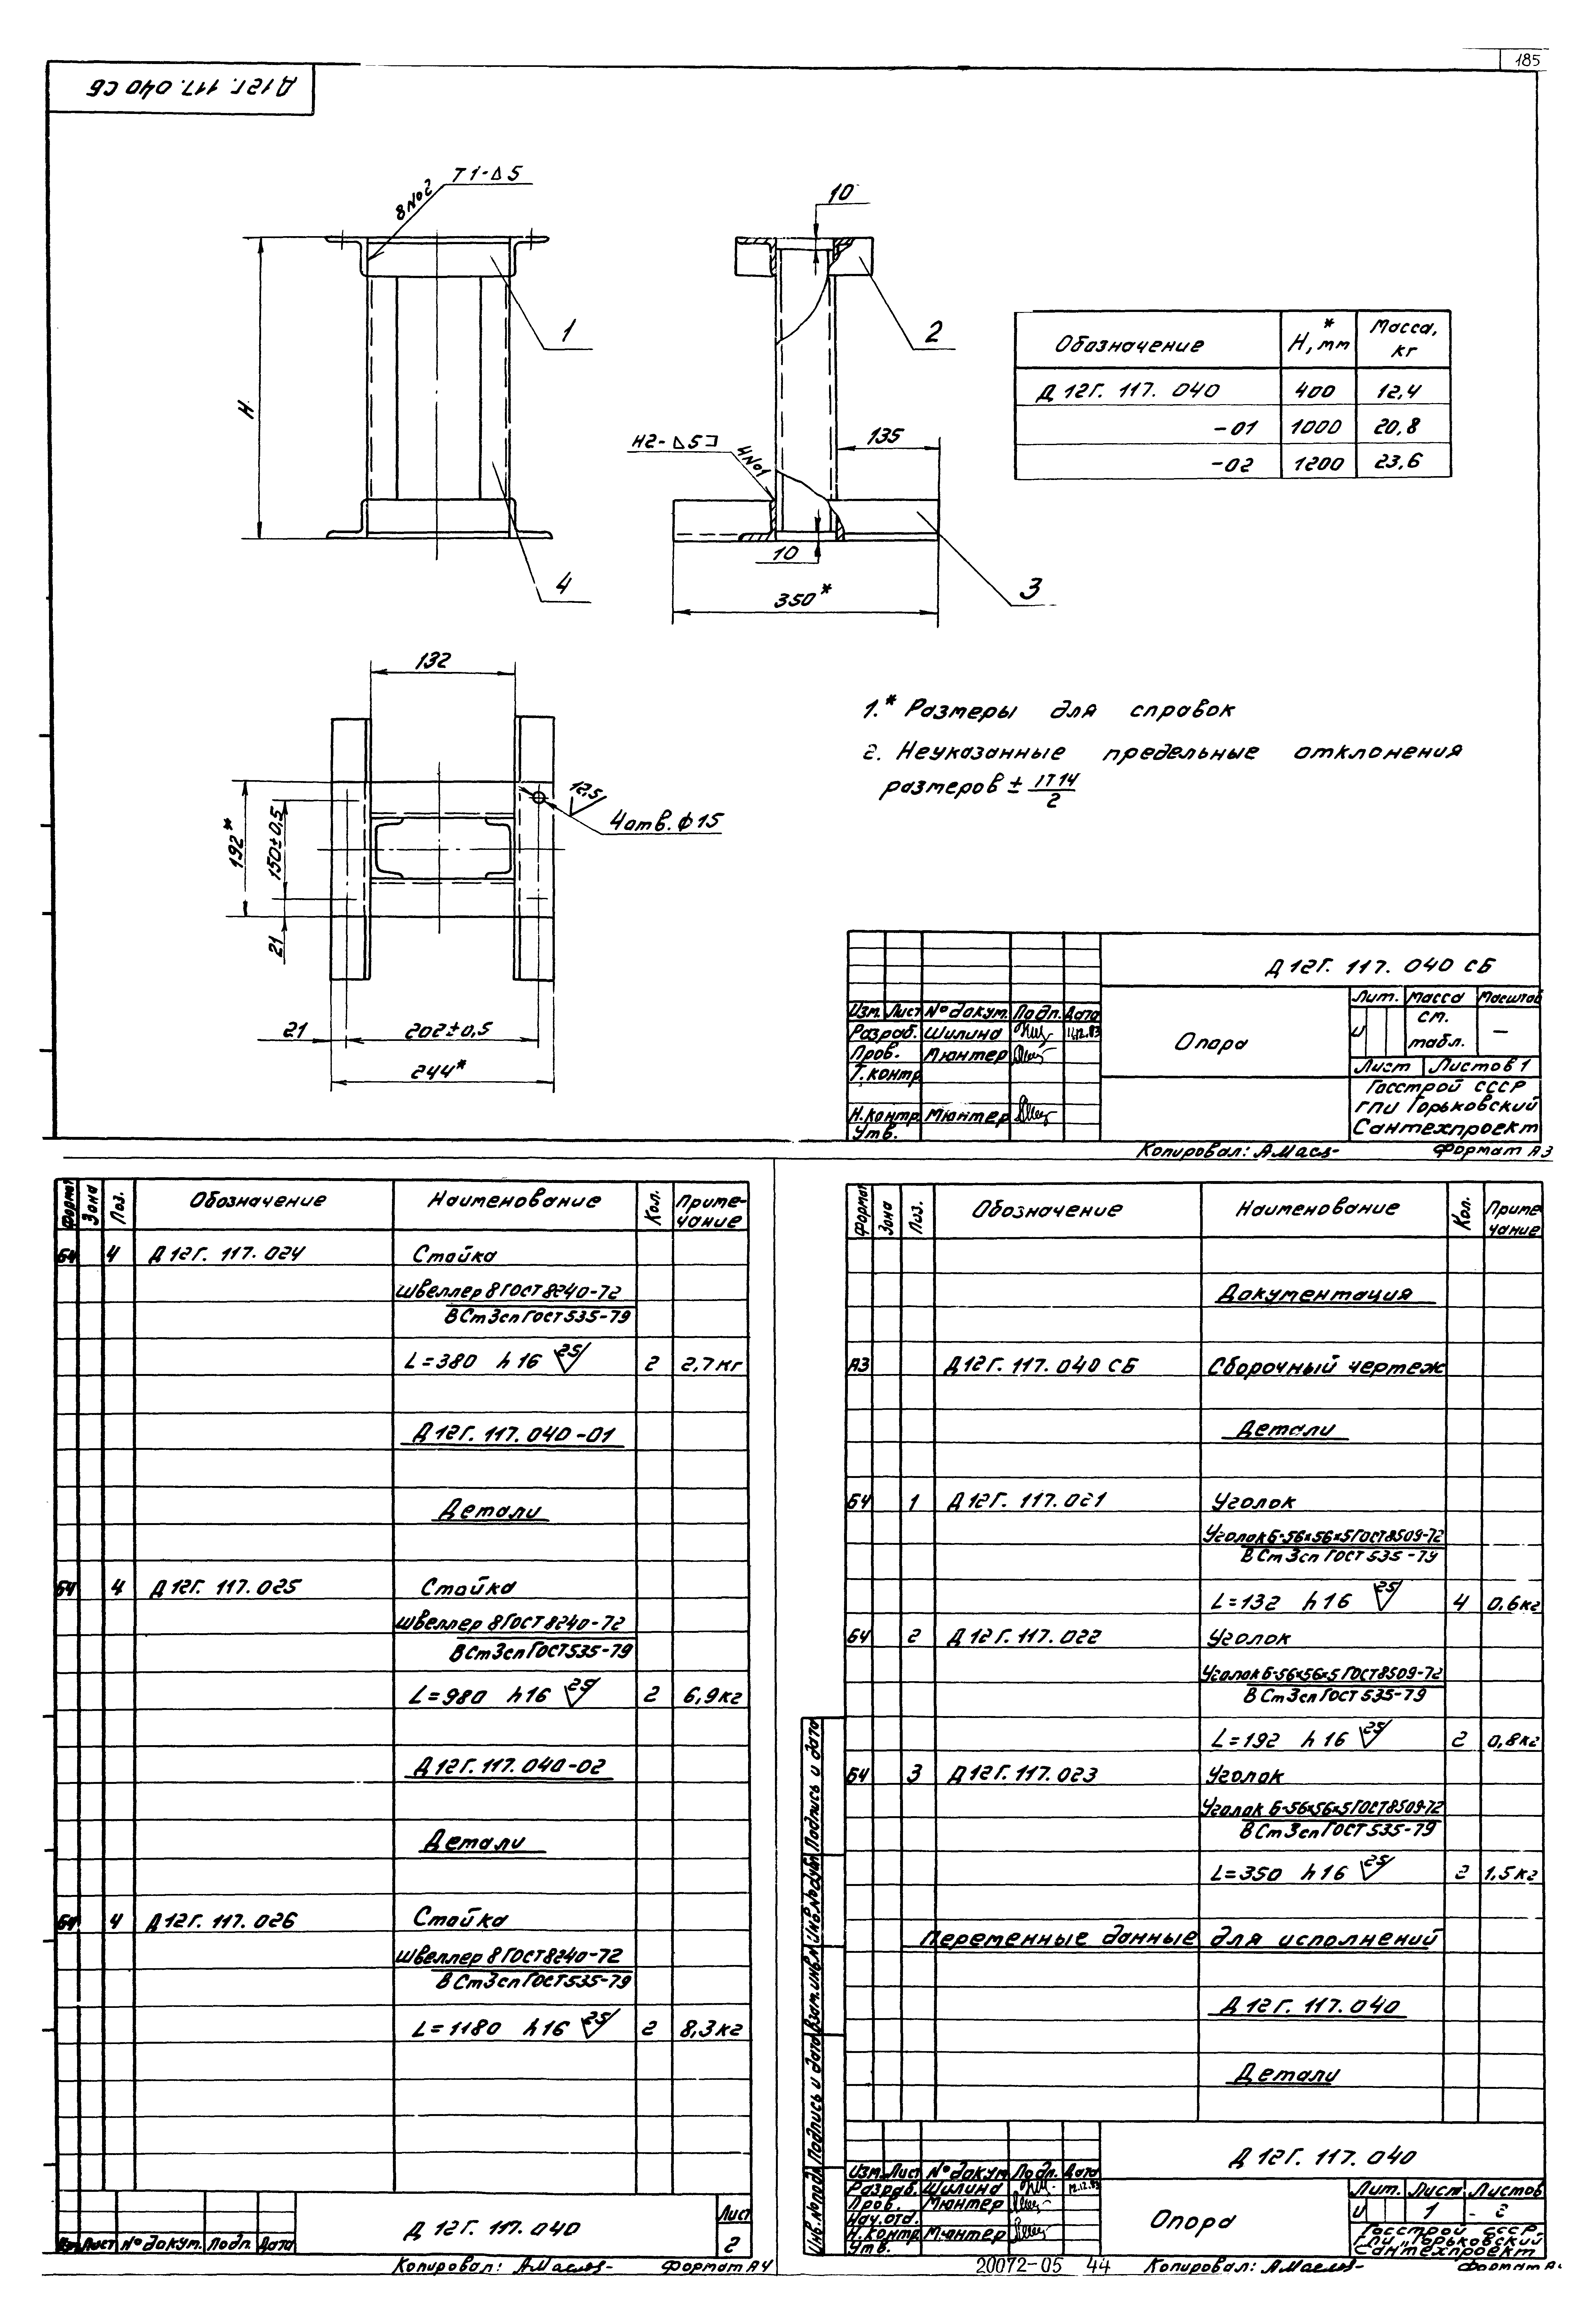 185
Д12Г. 117. 040 СБ
Т1-Δ5
8№2
10
H
1
2
Н2-Δ5
4№1
135
10
4
3
350*
Обозначение H,* мм Масса, кг
Д 12Г. 117. 040 400 12,4
-01 1000 20,8
-02 1200 23,6
132
12,5
4отв. ф15
192*
150±0,5
21
21 202±0,5
244*
1.* Размеры для справок
2. Неуказанные предельные отклонения
размеров ± IT14/2
Д 12Г. 117. 040 СБ
Изм. Лист № докум. Подп. Дата
Разраб. Шилина
Пров. Мюнтер
Т.контр
Н.контр. Мюнтер
Утв.
Опора
Лит. Масса Масштаб
И см. табл. —
Лист Листов 1
Госстрой СССР
ГПИ Горьковский
Сантехпроект
Копировал: Формат А3
Формат Зона Поз. Обозначение Наименование Кол. Приме-чание
Б4 4 Д 12Г. 117. 024 Стойка
Швеллер 8 ГОСТ 8240-72
ВСт3сп ГОСТ 535-79
L=380 h16 25 2 2,7кг
Д 12Г. 117. 040-01
Детали
Б4 4 Д 12Г. 117. 025 Стойка
Швеллер 8 ГОСТ 8240-72
ВСт3сп ГОСТ 535-79
L=980 h16 25 2 6,9кг
Д 12Г. 117. 040-02
Детали
Б4 4 Д 12Г. 117. 026 Стойка
Швеллер 8 ГОСТ 8240-72
ВСт3сп ГОСТ 535-79
L=1180 h16 25 2 8,3кг
Изм. Лист № докум. Подп. Дата
Д 12Г. 117. 040
Лист
2
Копировал: Формат А4
Формат Зона Поз. Обозначение Наименование Кол. Приме чание
Документация
А3 Д 12Г. 117. 040 СБ Сборочный чертеж
Детали
Б4 1 Д 12Г. 117. 021 Уголок
Уголок Б-56×56×5 ГОСТ 8509-72
ВСт3сп ГОСТ 535-79
L=132 h16 25 4 0,6кг
Б4 2 Д 12Г. 117. 022 Уголок
Уголок Б-56×56×5 ГОСТ 8509-72
ВСт3сп ГОСТ 535-79
L=192 h16 25 2 0,8кг
Б4 3 Д 12Г. 117. 023 Уголок
Уголок Б-56×56×5 ГОСТ 8509-72
ВСт3сп ГОСТ 535-79
L=350 h16 25 2 1,5кг
Переменные данные для исполнений
Д 12Г. 117. 040
Детали
Инв.№ подл. Подпись и дата Взам.инв.№ Инв.№ дубл. Подпись и дата
Д 12Г. 117. 040
Изм. Лист № докум Подп. Дата
Разраб. Шилина
Пров. Мюнтер
Нач.отд.
Н.контр Мюнтер
Утв.
Опора
Лит. Лист Листов
И 1 2
Госстрой СССР
ГПИ "Горьковский
Сантехпроект
20072-05 44 Копировал: Формат А4